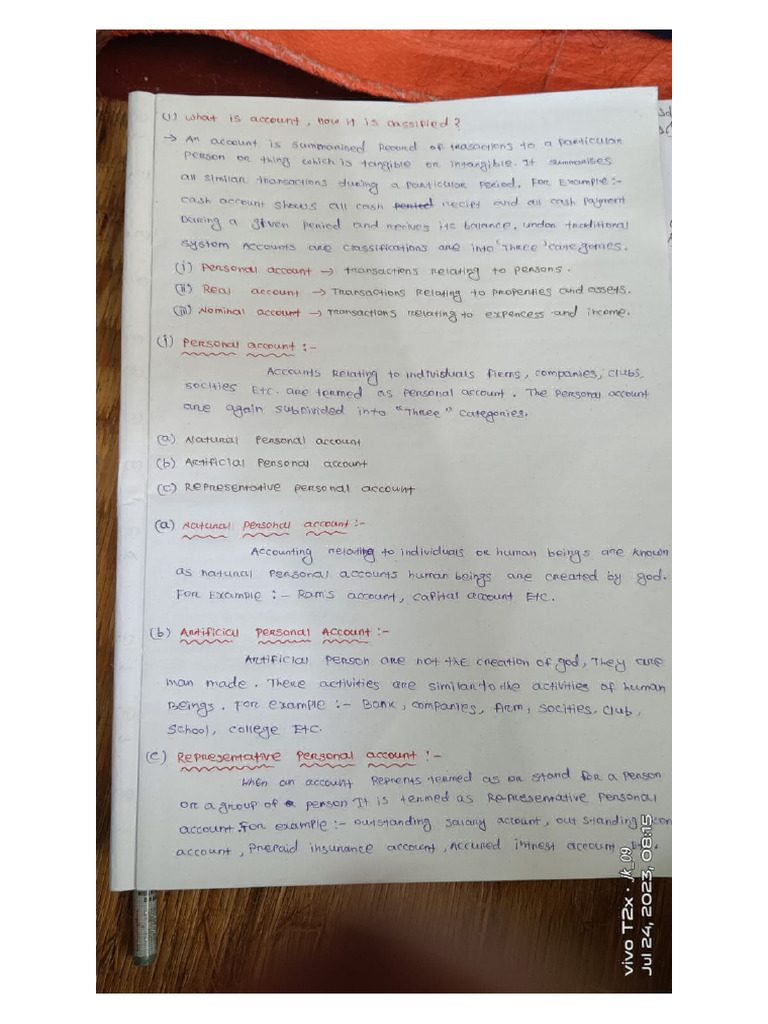 (1) What is account, how it is classified?
→ An account is summarined Record of trasactions to a particular
person or thing which is tangible or intangible. It summarises
all similar transactions during a particular Period. For Example:-
cash account shows all cash recipt and all cash payment
During a given period and its balance. under traditional
system Accounts are classifications are into "Three" categories.
(i) Personal account → transactions relating to persons.
(ii) Real account → Transactions Relating to properties and assets.
(iii) Nominal account → Transactions relating to expencess and income.
(i) Personal account :-
Accounts Relating to individuals firms, companies, clubs,
socities Etc. are termed as personal account. The personal account
are again subdivided into "Three" categories.
(a) Natural Personal account
(b) Artificial Personal account
(c) Representative personal account
(a) Natural Personal account :-
Accounting relating to individuals or human beings are known
as natural Personal accounts human beings are created by god.
For Example :- Ram's account, capital account Etc.
(b) Artificial Personal Account :-
Artificial Person are not the creation of god, They are
man made. There activities are similar to the activities of human
Beings. For example :- Bank, companies, firm, socities, club,
School, college Etc.
(c) Representative Personal account :-
When an account Reprents termed as or stand for a Person
or a group of person It is termed as Represenative personal
account. For example :- outstanding salary account, out standing
account, Prepaid insurance account, Accured intrest account
vivo T2x · jk_09
Jul 24, 2023, 08:15